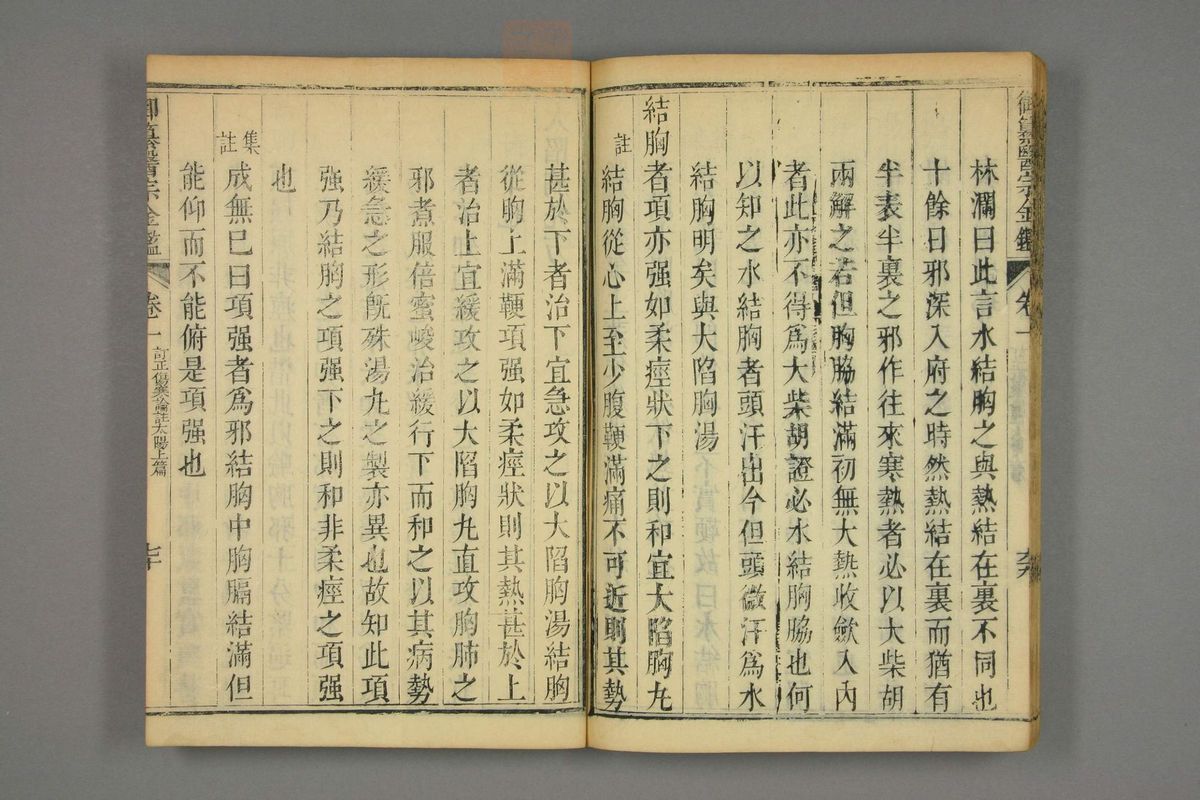 御纂醫宗金鑑 卷一
林瀾曰此言水結胸之與熱結在裏不同也
十餘日邪深入府之時然熱結在裏而猶有
半表半裏之邪作往來寒熱者必以大柴胡
兩解之若但胸脇結滿初無大熱收歛入內
者此亦不得爲大柴胡證必水結胸脇也何
以知之水結胸者頭汗出今但頭微汗爲水
結胸明矣與大陷胸湯
結胸者項亦强如柔痙狀下之則和宜大陷胸丸
註 結胸從心上至少腹鞕滿痛不可近則其勢
甚於下者治下宜急攻之以大陷胸湯結胸
從胸上滿鞕項强如柔痙狀則其熱甚於上
者治上宜緩攻之以大陷胸丸直攻胸肺之
邪煮服倍蜜峻治緩行下而和之以其病勢
緩急之形旣殊湯丸之製亦異也故知此項
强乃結胸之項强下之則和非柔痙之項强
也
集註 成無已曰項强者爲邪結胸中胸膈結滿但
能仰而不能俯是項强也
御纂醫宗金鑑 卷一 訂正傷寒論註太陽上篇 七十